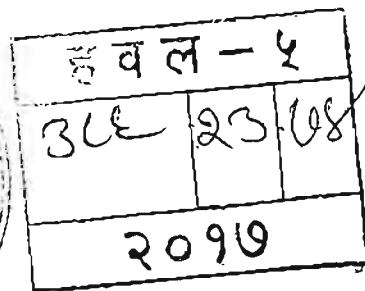 हवल - ५
३८६ २३ ७४
२०१७